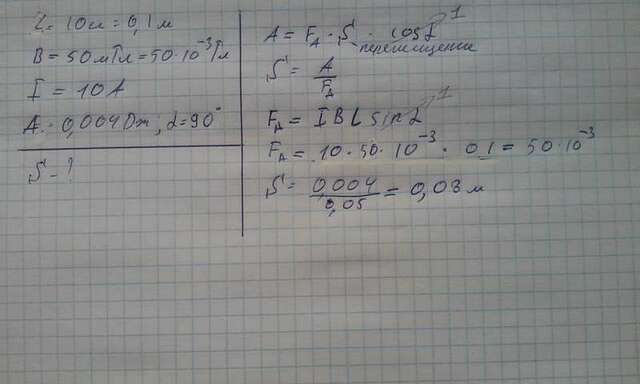 L = 10 см = 0,1 м
B = 50 мТл = 50·10⁻³ Тл
I = 10 А
A = 0,004 Дж; α = 90°
S - ?
A = Fд · S · cos α 1
перемещение
S = A / Fд
Fд = I B L sin α 1
Fд = 10 · 50 · 10⁻³ · 0,1 = 50·10⁻³
S = 0,004 / 0,05 = 0,08 м